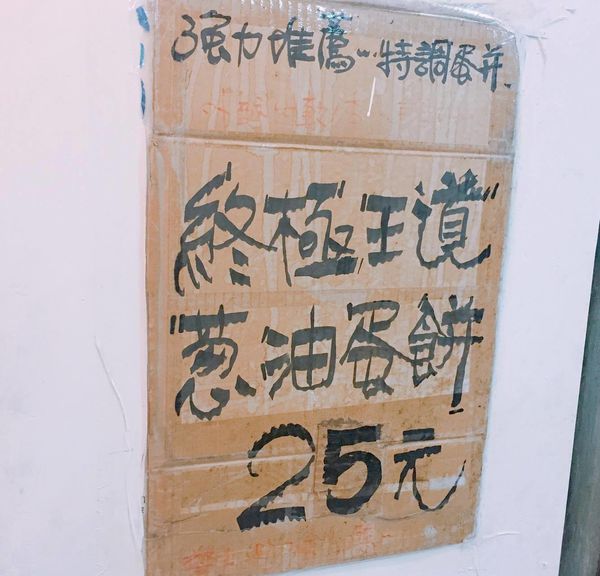 強力推薦~特調蛋并
終極"王道"
"蔥油蛋餅"
25元